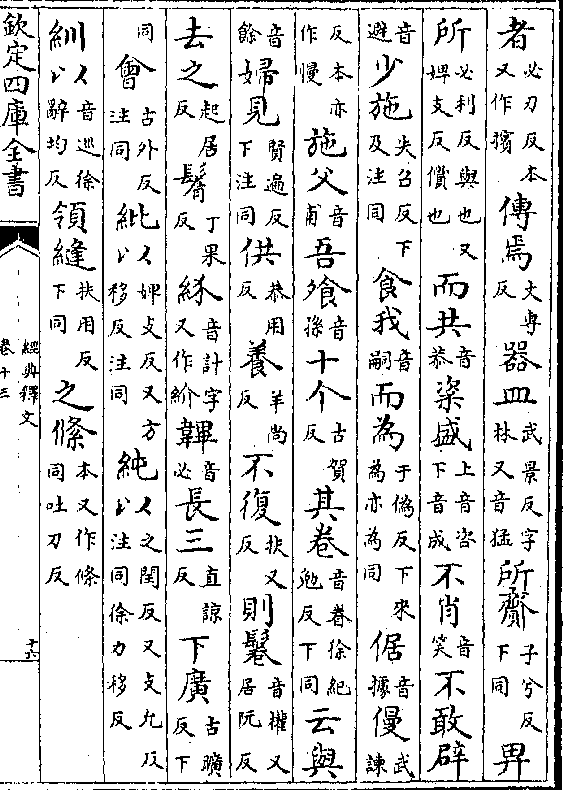 者必刃反本又作擯傳焉丈專反器皿武景反字林又音猛所齎子兮反下同畀
所必利反與也又婢支反償也而共音恭粢盛上音咨下音成不肖音笑不敢辟
音避少施失召反下及注同食我音嗣而為于偽反下來為亦為同倨音據僈武諫
反本亦作慢施父音甫吾飧音孫十个古賀反其卷音眷徐紀勉反下同云與
音餘婦見賢遍反下注同供恭用反養羊尚反不復扶又反則鬈音權又居阮反
去之起居反鬌丁果反音計字又作紒韠音必長三直諒反下廣古曠反下
同會古外反注同紕以婢支反又方移反注同純以之閏反又支允反注同徐力移反
紃以音巡徐辭均反領縫扶用反下同之絛本又作條同吐刀反
欽定四庫全書
經典釋文
卷十三
十六